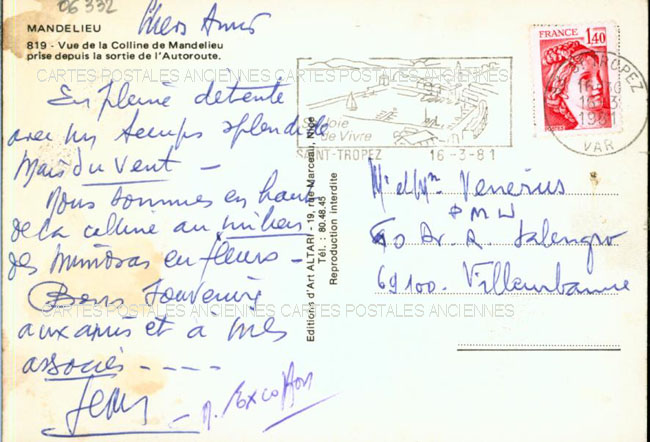 06 332
MANDELIEU
Chers Amis
819 - Vue de la Colline de Mandelieu
prise depuis la sortie de l'Autoroute.
CARTES POSTALES ANCIENNES CARTES POSTALES ANCIENNES
En pleine détente
avec un temps splendide
Mais du vent -
Nous sommes en haut
de la colline au milieu
des mimosas en fleurs -
Bons souvenirs
CARTES POSTALES ANCIENNES CARTES POSTALES ANCIENNES
aux amis et a mes
associés - - - -
Jean
Editions d'Art ALTARI - 19, rue Marceau, Nice
Tél. : 80.48.45
Reproduction interdite
FRANCE
1,40
POSTES
La Joie
de Vivre
SAINT-TROPEZ 16-3-81
ST-TROPEZ
16-3
1981
VAR
Mr et Mme Venerius
PMW
60 Av. R. Salengro
69100. Villeurbanne